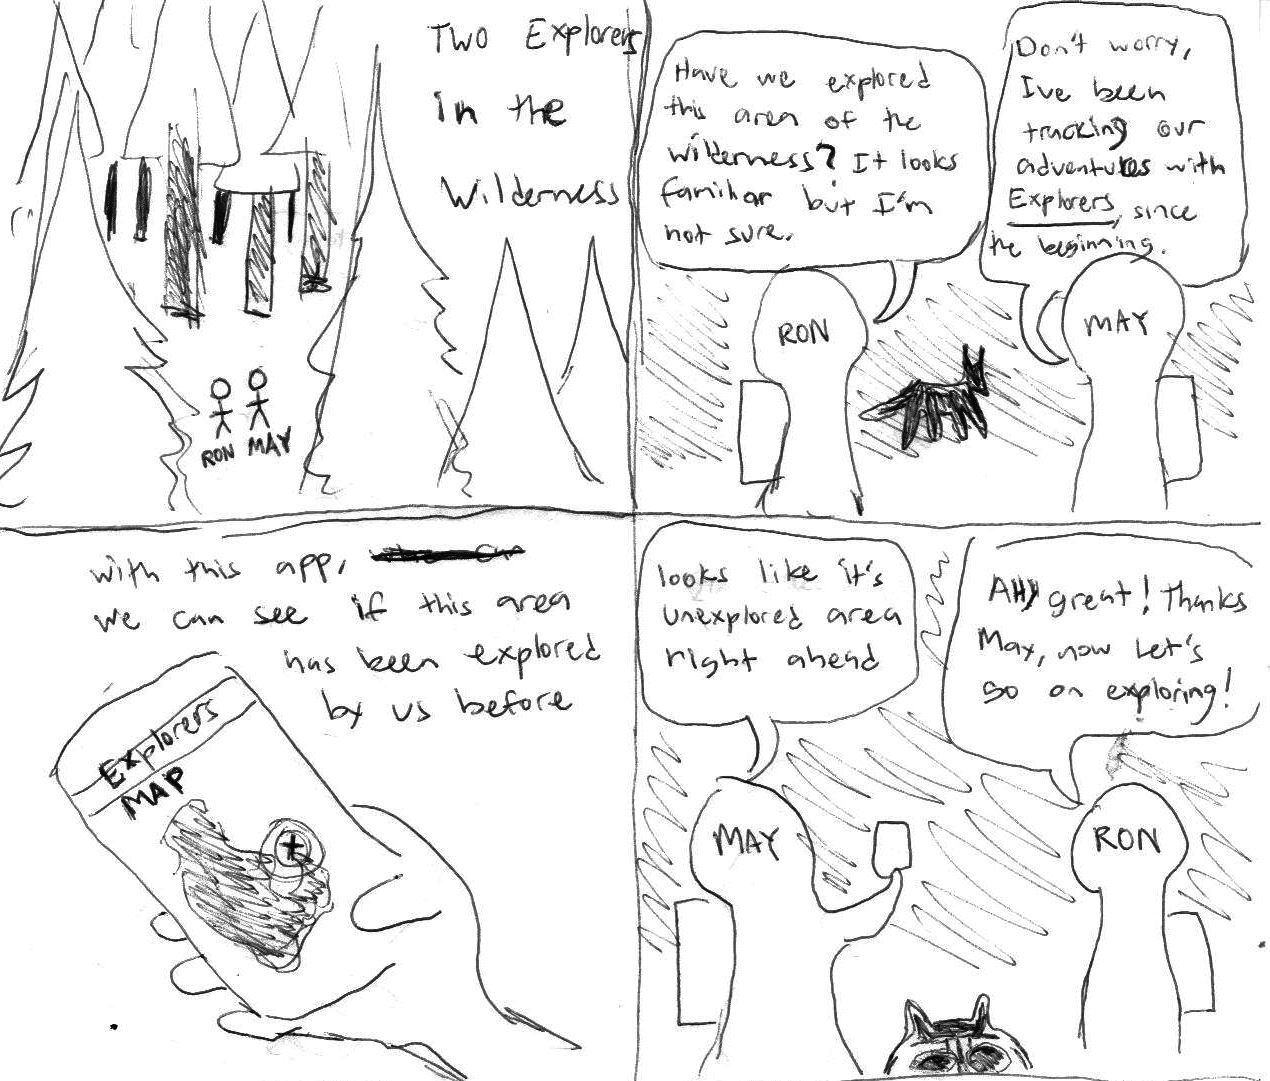 Two Explorers
in the
Wilderness
RON MAY
Have we explored
this area of the
wilderness? It looks
familiar but I'm
not sure.
Don't worry,
I've been
tracking our
adventures with
Explorers, since
the beginning.
RON
MAY
with this app,
we can see if this area
has been explored
by us before
Explorers
MAP
looks like it's
unexplored area
right ahead
AHH great! Thanks
May, now Let's
go on exploring!
MAY
RON